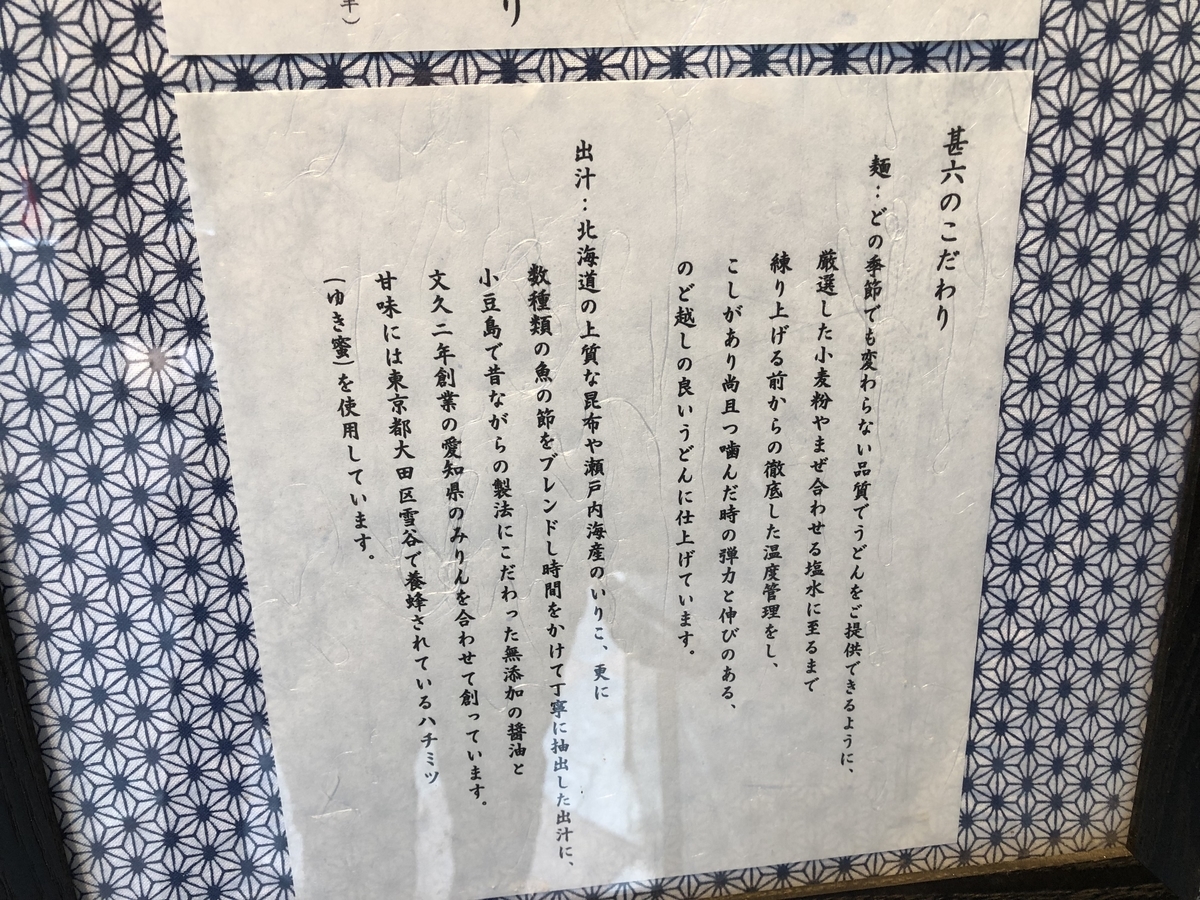 り
甚六のこだわり
麺：どの季節でも変わらない品質でうどんをご提供できるように、
厳選した小麦粉やまぜ合わせる塩水に至るまで
練り上げる前からの徹底した温度管理をし、
こしがあり尚且つ噛んだ時の弾力と伸びのある、
のど越しの良いうどんに仕上げています。
出汁：北海道の上質な昆布や瀬戸内海産のいりこ、更に
数種類の魚の節をブレンドし時間をかけて丁寧に抽出した出汁に、
小豆島で昔ながらの製法にこだわった無添加の醤油と
文久二年創業の愛知県のみりんを合わせて創っています。
甘味には東京都大田区雪谷で養蜂されているハチミツ
（ゆき蜜）を使用しています。